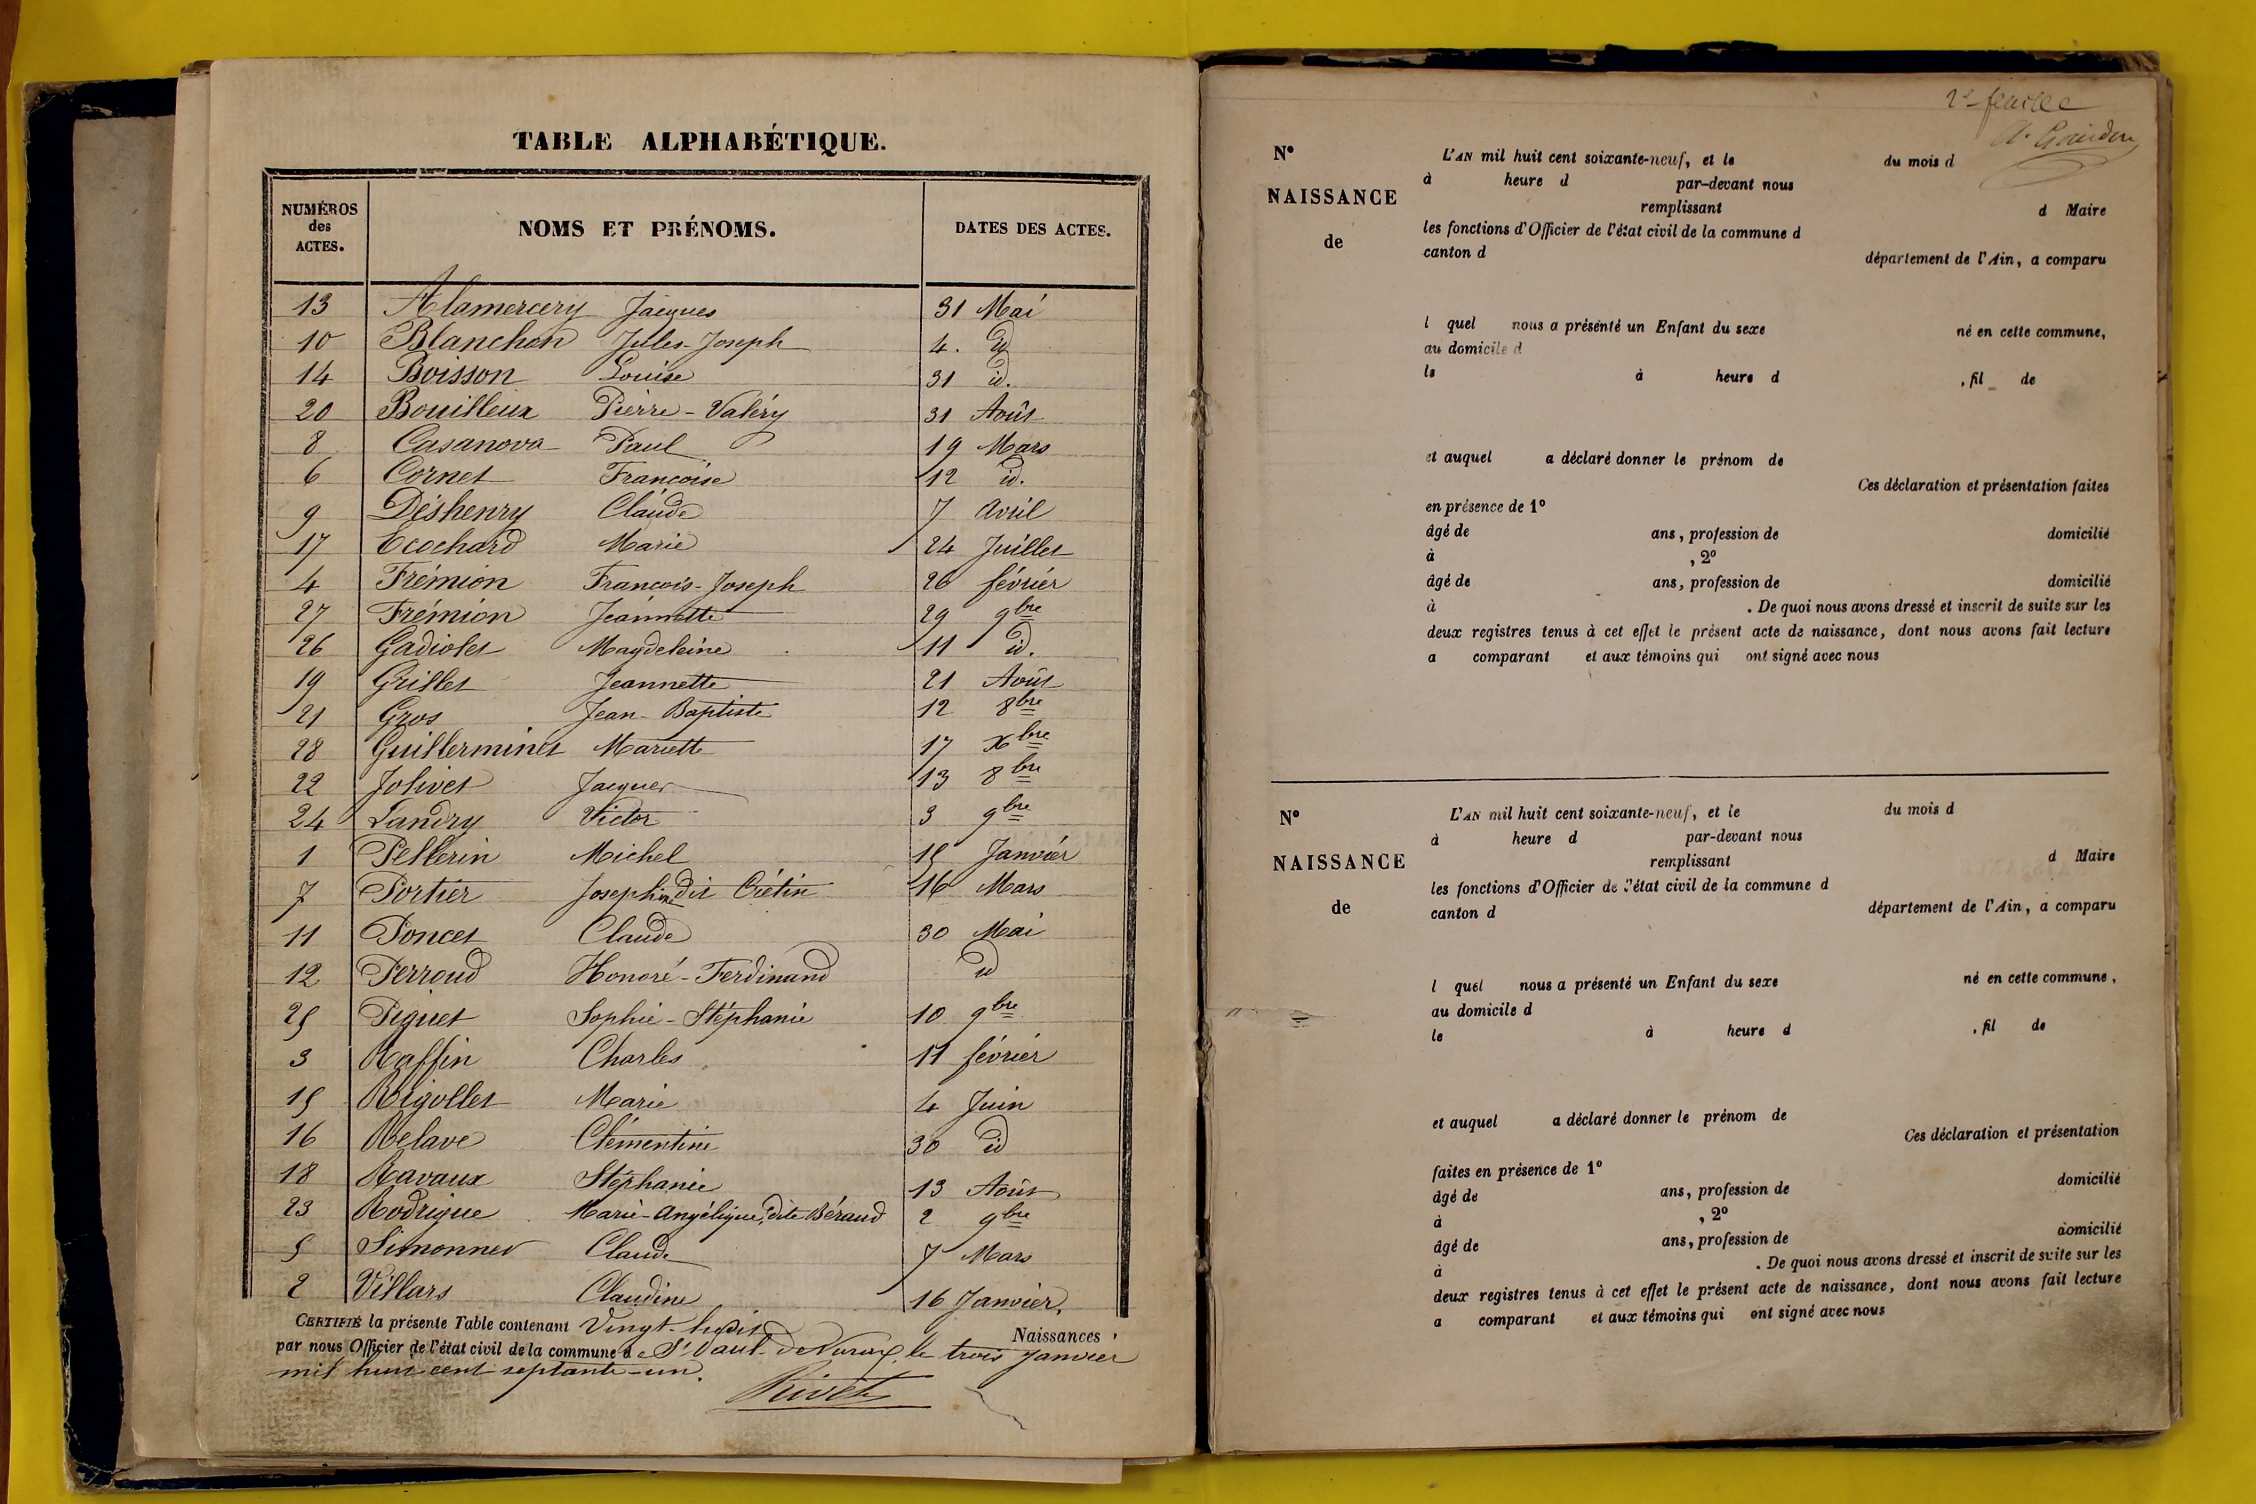 TABLE ALPHABÉTIQUE.
NUMÉROS des ACTES. NOMS ET PRÉNOMS. DATES DES ACTES.
13 Alamercery Jacques 31 Mai
10 Blanchon Jules-Joseph 4. id
14 Boisson Louise 31 id.
20 Bouilleux Pierre-Valéry 31 Août
8 Casanova Paul 19 Mars
6 Cornet Françoise 12 id.
9 Déshenry Claude 7 Avril
17 Ecochard Marie 24 Juillet
4 Frémion François-Joseph 26 février
27 Frémion Jeannette 29 9bre
26 Gadiolet Magdeleine 11 id.
19 Grillet Jeannette 21 Août
21 Gros Jean-Baptiste 12 8bre
28 Guillerminet Mariette 17 Xbre
22 Jolivet Jacques 13 8bre
24 Landry Victor 3 9bre
1 Pellerin Michel 15 Janvier
7 Portier Josephin dit Crétin 16 Mars
11 Poncet Claude 30 Mai
12 Perroud Honoré-Ferdinand id
25 Piguet Sophie-Stéphanie 10 9bre
3 Raffin Charles 11 février
15 Rigollet Marie 4 Juin
16 Relave Clémentine 30 id
18 Ravaux Stéphanie 13 Août
23 Rodrigue Marie-Angélique, dite Béraud 2 9bre
5 Simonnet Claude 7 Mars
2 Villars Claudine 16 Janvier.
CERTIFIÉ la présente Table contenant Vingt-huit Naissances
par nous Officier de l'état civil de la commune de St Paul de Varax, le trois janvier
mil huit cent septante-un.
Rivet
2e feuille
Nº L'AN mil huit cent soixante-neuf, et le du mois d
à heure d par-devant nous
NAISSANCE remplissant d Maire
les fonctions d'Officier de l'état civil de la commune d
de canton d département de l'Ain, a comparu
l quel nous a présenté un Enfant du sexe né en cette commune,
au domicile d
le à heure d , fil de
et auquel a déclaré donner le prénom de
Ces déclaration et présentation faites
en présence de 1º
âgé de ans, profession de domicilié
à , 2º
âgé de ans, profession de domicilié
à . De quoi nous avons dressé et inscrit de suite sur les
deux registres tenus à cet effet le présent acte de naissance, dont nous avons fait lecture
a comparant et aux témoins qui ont signé avec nous
Nº L'AN mil huit cent soixante-neuf, et le du mois d
à heure d par-devant nous
NAISSANCE remplissant d Maire
les fonctions d'Officier de l'état civil de la commune d
de canton d département de l'Ain, a comparu
l quel nous a présenté un Enfant du sexe né en cette commune,
au domicile d
le à heure d , fil de
et auquel a déclaré donner le prénom de
Ces déclaration et présentation
faites en présence de 1º
âgé de ans, profession de domicilié
à , 2º
âgé de ans, profession de domicilié
à . De quoi nous avons dressé et inscrit de suite sur les
deux registres tenus à cet effet le présent acte de naissance, dont nous avons fait lecture
a comparant et aux témoins qui ont signé avec nous